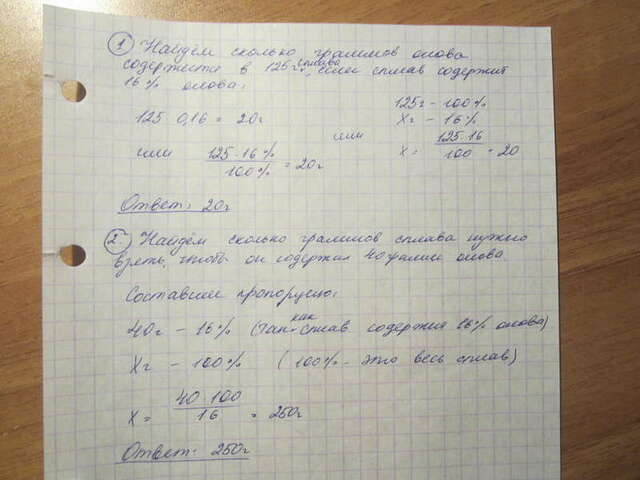 1 Найдём сколько граммов олова
содержится в 125г сплава, если сплав содержит
16% олова:
125 0,16 = 20г
или 125·16% / 100% = 20г
или
125г - 100%
Xг - 16%
X = 125·16 / 100 = 20
Ответ: 20г
2. Найдём сколько граммов сплава нужно
взять, чтобы он содержал 40 олова
Составим пропорцию:
40г - 16% (так как сплав содержит 16% олова)
Xг - 100% (100% - это весь сплав)
X = 40·100 / 16 = 250г
Ответ: 250г